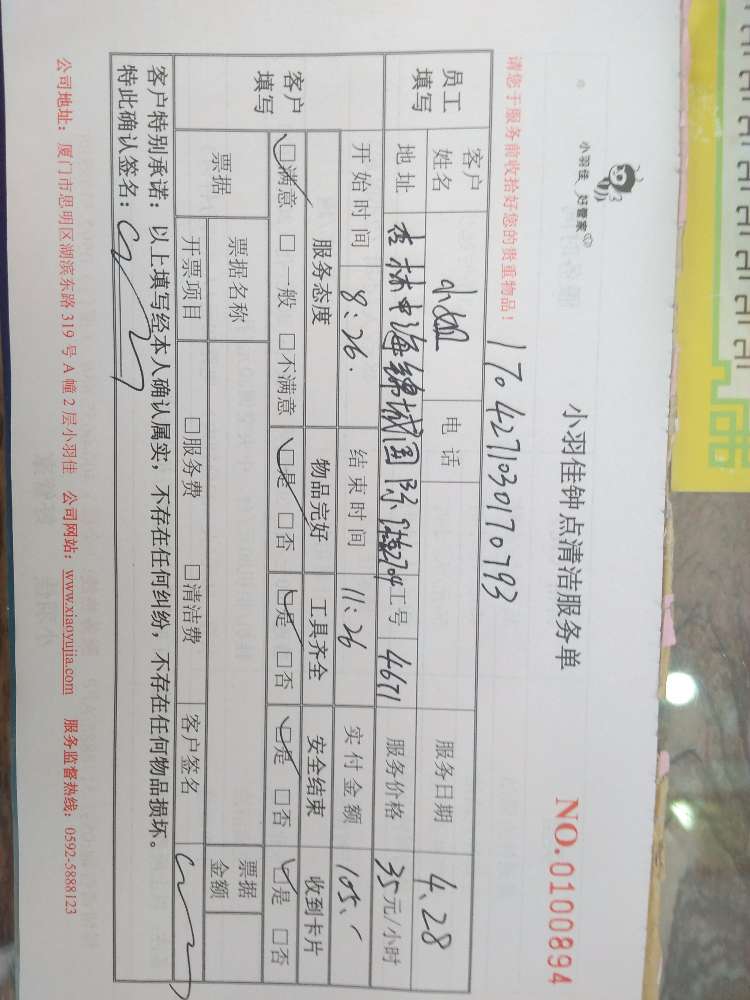 小羽佳 好管家
小羽佳钟点清洁服务单
NO.0100894
请您于服务前收拾好您的贵重物品！
1704271030170793
员工填写 客户姓名 小姐 电话 服务日期 4.28
地址 杏林中海锦城国际 2704 工号 4671 服务价格 35元/小时
开始时间 8:26. 结束时间 11:26 实付金额 105.
客户填写 服务态度 物品完好 工具齐全 安全结束 收到卡片
☑满意 □一般 □不满意 ☑是 □否 ☑是 □否 ☑是 □否 ☑是 □否
票据 票据名称 票据金额
开票项目 □服务费 □清洁费 客户签名
客户特别承诺：以上填写经本人确认属实，不存在任何纠纷，不存在任何物品损坏。
特此确认签名：
公司地址：厦门市思明区湖滨东路319号A幢2层小羽佳 公司网站：www.xiaoyujia.com 服务监督热线：0592-5888123